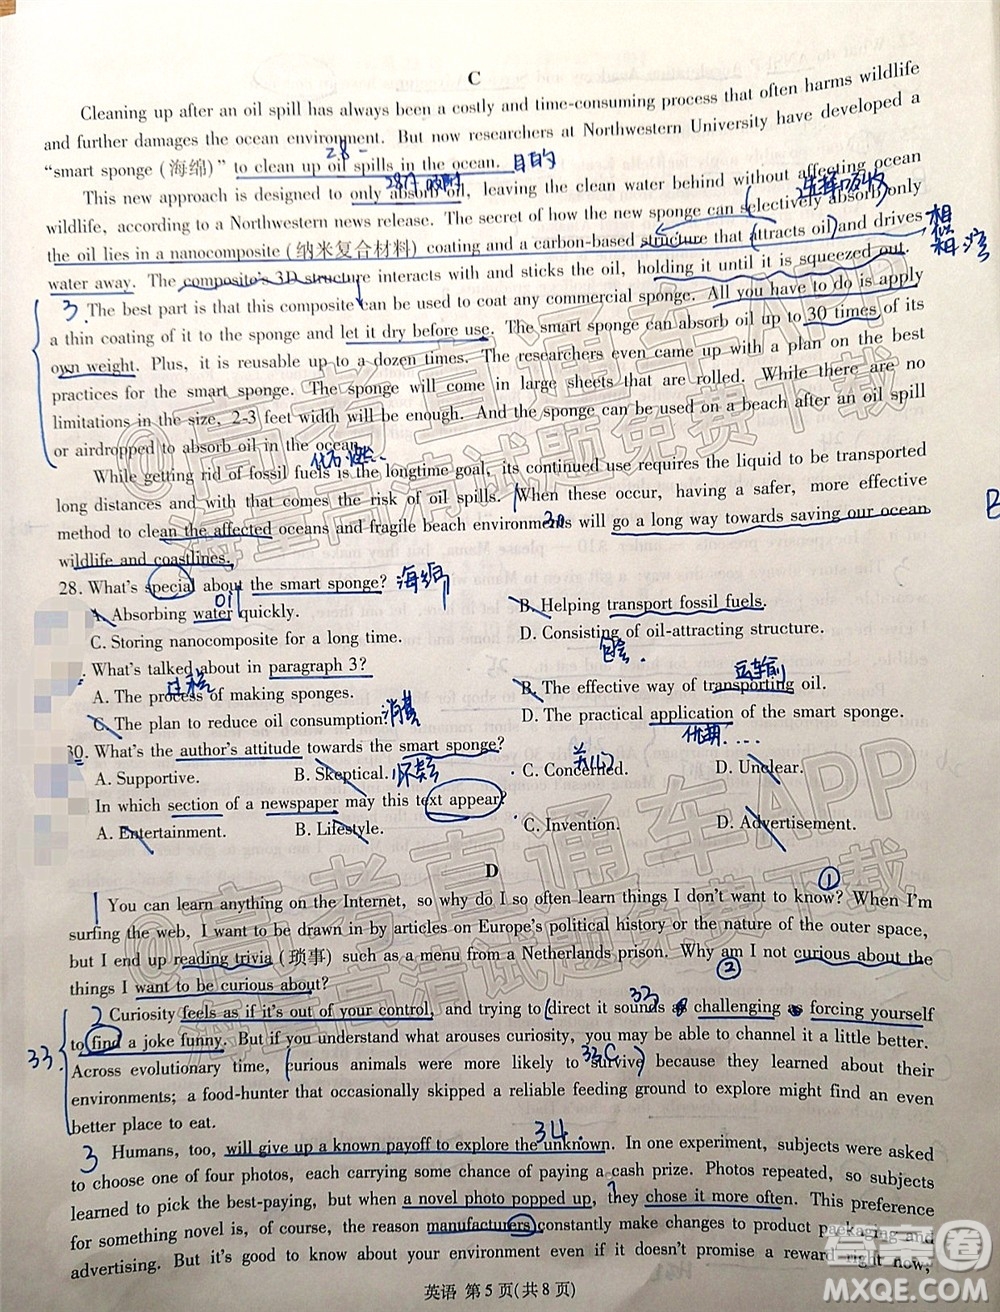 C
Cleaning up after an oil spill has always been a costly and time-consuming process that often harms wildlife
and further damages the ocean environment. But now researchers at Northwestern University have developed a
“smart sponge (海绵)” to clean up oil spills in the ocean. 目的
This new approach is designed to only absorb oil, leaving the clean water behind without affecting ocean
wildlife, according to a Northwestern news release. The secret of how the new sponge can selectively absorb only
the oil lies in a nanocomposite (纳米复合材料) coating and a carbon-based structure that attracts oil and drives
water away. The composite's 3D structure interacts with and sticks the oil, holding it until it is squeezed out.
3 The best part is that this composite can be used to coat any commercial sponge. All you have to do is apply
a thin coating of it to the sponge and let it dry before use. The smart sponge can absorb oil up to 30 times of its
own weight. Plus, it is reusable up to a dozen times. The researchers even came up with a plan on the best
practices for the smart sponge. The sponge will come in large sheets that are rolled. While there are no
limitations in the size, 2-3 feet width will be enough. And the sponge can be used on a beach after an oil spill
or airdropped to absorb oil in the ocean.
While getting rid of fossil fuels is the longtime goal, its continued use requires the liquid to be transported
long distances and with that comes the risk of oil spills. When these occur, having a safer, more effective
method to clean the affected oceans and fragile beach environments will go a long way towards saving our ocean
wildlife and coastlines.
28. What's special about the smart sponge? 海绵
A. Absorbing water quickly. B. Helping transport fossil fuels.
C. Storing nanocomposite for a long time. D. Consisting of oil-attracting structure.
. What's talked about in paragraph 3?
A. The process of making sponges. B. The effective way of transporting oil.
C. The plan to reduce oil consumption. D. The practical application of the smart sponge.
30. What's the author's attitude towards the smart sponge?
A. Supportive. B. Skeptical. 怀疑 C. Concerned. D. Unclear.
In which section of a newspaper may this text appear?
A. Entertainment. B. Lifestyle. C. Invention. D. Advertisement.
D
1 You can learn anything on the Internet, so why do I so often learn things I don't want to know? When I'm
surfing the web, I want to be drawn in by articles on Europe's political history or the nature of the outer space,
but I end up reading trivia (琐事) such as a menu from a Netherlands prison. Why am I not curious about the
things I want to be curious about?
2 Curiosity feels as if it's out of your control, and trying to direct it sounds as challenging as forcing yourself
to find a joke funny. But if you understand what arouses curiosity, you may be able to channel it a little better.
Across evolutionary time, curious animals were more likely to survive because they learned about their
environments; a food-hunter that occasionally skipped a reliable feeding ground to explore might find an even
better place to eat.
3 Humans, too, will give up a known payoff to explore the unknown. In one experiment, subjects were asked
to choose one of four photos, each carrying some chance of paying a cash prize. Photos repeated, so subjects
learned to pick the best-paying, but when a novel photo popped up, they chose it more often. This preference
for something novel is, of course, the reason manufacturers constantly make changes to product packaging and
advertising. But it's good to know about your environment even if it doesn't promise a reward right now;
英语 第5页(共8页)
答案卷
MXQE.COM
@高考直通车APP
海量高清试题免费下载
@高考直通车APP
海量高清试题免费下载